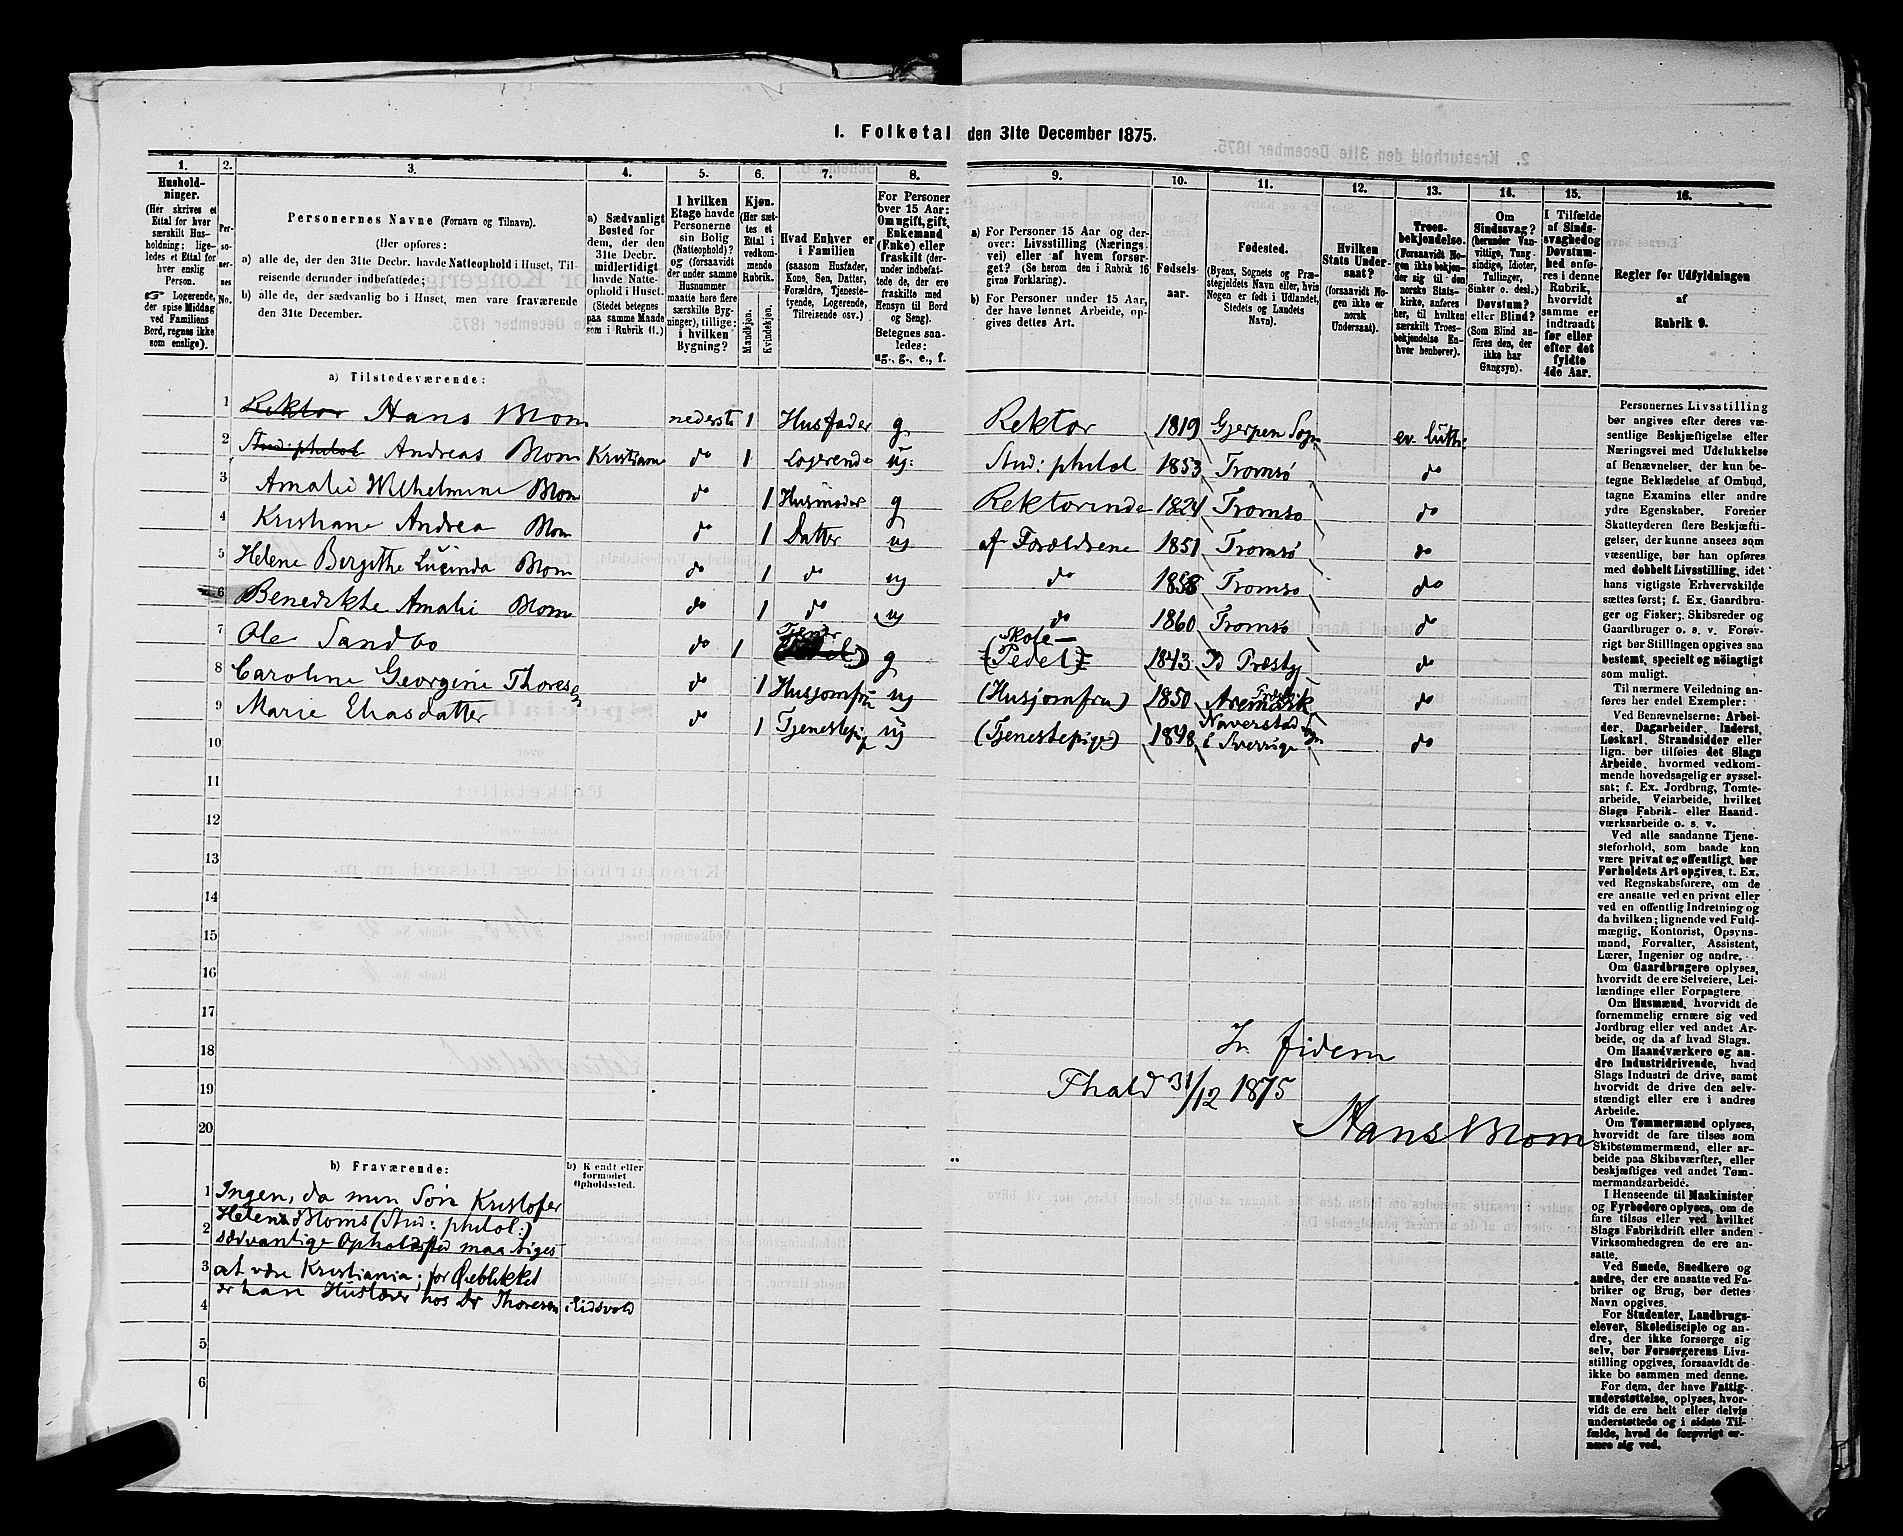 I. Folketal den 31te December 1875.
1. 2. 3. 4. 5. 6. 7. 8. 9. 10. 11. 12. 13. 14. 15. 16.
Husholdninger.
(Her skrives et
Ettal for hver
særskilt Husholdning;
ligeledes
et Ettal for
hver enslig
Person.
☞ Logerende,
der spise Middag
ved Familiens
Bord, regnes ikke
som enslige).
Personernes No.
Personernes Navne (Fornavn og Tilnavn).
(Her opføres:
a) alle de, der den 31te Decbr. havde Natteophold i Huset, Tilreisende
derunder indbefattede;
b) alle de, der sædvanlig bo i Huset, men vare fraværende
den 31te December.
a) Sædvanligt
Bosted for
dem, der den
31te Decbr.
midlertidigt
havde Natteophold
i Huset.
(Stedet betegnes
paa samme Maade
som i Rubrik 11.)
I hvilken
Etage havde
Personerne
sin Bolig
(Natteophold)?
og (forsaavidt
der under samme
Husnummer
maatte høre flere
særskilte Bygninger),
tillige:
i hvilken
Bygning?
Kjøn.
(Her sættes
et
Ettal i
vedkommende
Rubrik.
Mandkjøn. Kvindekjøn.
Hvad Enhver er
i Familien
(saasom Husfader,
Kone, Søn, Datter,
Forældre, Tjenestetyende,
Logerende,
Tilreisende osv.)
For Personer
over 15 Aar:
Om ugift, gift,
Enkemand
(Enke) eller
fraskilt (derunder
indbefattede
de, der ere
fraskilte med
Hensyn til Bord
og Seng).
Betegnes saaledes:
ug., g., e., f.
a) For Personer 15 Aar og derover:
Livsstilling (Næringsvei)
eller af hvem forsørget?
(Se herom den i Rubrik 16
givne Forklaring).
b) For Personer under 15 Aar,
der have lønnet Arbeide, opgives
dettes Art.
Fødselsaar.
Fødested.
(Byens, Sognets og Præstegjeldets
Navn eller, hvis
Nogen er født i Udlandet,
Stedets og Landets
Navn).
Hvilken
Stats Undersaat?
(forsaavidt Nogen
ikke er
norsk
Undersaat).
Troesbekjendelse.
(Forsaavidt Nogen
ikke bekjender
sig til den
norske Statskirke,
anføres
her, til hvilken
særskilt Troesbekjendelse
Enhver
henhører).
Om
Sindssvag?
(herunder Vanvittige,
Tungsindige,
Idioter,
Tullinger,
Sinker o. desl.)
Døvstum?
eller Blind?
(Som Blind anføres
den, der
ikke har
Gangsyn).
I Tilfælde
af Sindssvaghed
og
Døvstumhed
anføres
i denne
Rubrik,
hvorvidt
samme er
indtraadt
før eller
efter det
fyldte
4de Aar.
Regler for Udfyldningen
af
Rubrik 9.
a) Tilstedeværende:
1 Rektor Hans Blom nederste 1 Husfader g Rektor 1819 Gjerpen Sogn ev. luth:
2 Stud: philol Andreas Blom Kristiania do 1 Logerende ug: Stud: philol 1853 Tromsø do
3 Amalie Wilhelmine Blom do 1 Husmoder g Rektorinde 1824 Tromsø do
4 Kristiane Andrea Blom do 1 Datter ug af Forældrene 1851 Tromsø do
5 Helene Birgitte Lucinda Blom do 1 do ug do 1858 Tromsø do
6 Benedikte Amalie Blom do 1 do ug do 1860 Tromsø do
7 Ole Sandbo do 1 Tjener g Skole-(Pedel) 1843 Id Præstgj do
8 Caroline Georgine Thoresen do 1 Husjomfru ug (Husjomfru) 1850 Aremark do
9 Marie Eliasdatter do 1 Tjenestepige ug (Tjenestepige) 1848 Naverstad Sogn i Sverrige do
10
11
12
13
14
15
16
17
18
19
20
In fidem
Fhald 31/12 1875
Hans Blom
b) Fraværende:
b) Kjendt eller
formodet
Opholdssted.
1 Ingen, da min Søn Kristofer
Helenus Bloms (Stud: philol:)
2 sædvanlige Opholdssted maa siges
3 at være Kristiania; for Øieblikket
4 er han Huslærer hos Dr Thoresen i Eidsvold
5
6
Personernes Livsstilling
bør angives efter deres væsentlige
Beskjæftigelse eller
Næringsvei med Udelukkelse
af Benævnelser, der kun betegne
Beklædelse af Ombud,
tagne Examina eller andre
ydre Egenskaber. Forener
Skatteyderen flere Beskjæftigelser,
der kunne ansees som
væsentlige, bør han opføres
med dobbelt Livsstilling, idet
hans vigtigste Erhvervskilde
sættes først; f. Ex. Gaardbruger
og Fisker; Skibsreder og
Gaardbruger o. s. v. Forøvrigt
bør Stillingen opgives saa
bestemt, specielt og nøiagtigt
som muligt.
Til nærmere Veiledning anføres
her endel Exempler:
Ved Benævnelserne: Arbeider,
Dagarbeider, Inderst,
Løskarl, Strandsidder eller
lign. bør tilføies det Slags
Arbeide, hvormed vedkommende
hovedsagelig er sysselsat;
f. Ex. Jordbrug, Tomtearbeide,
Veiarbeide, hvilket
Slags Fabrik- eller Haandværksarbeide
o. s. v.
Ved alle saadanne Tjenesteforhold,
som baade kan
være privat og offentligt, bør
Forholdets Art opgives, f. Ex.
ved Regnskabsførere, om de
ere ansatte ved en privat eller
ved en offentlig Indretning og
da hvilken; lignende ved Fuldmægtig,
Kontorist, Opsynsmand,
Forvalter, Assistent,
Lærer, Ingeniør og andre.
Om Gaardbrugere oplyses,
hvorvidt de ere Selveiere, Leilændinge
eller Forpagtere
Om Husmænd, hvorvidt de
fornemmelig ernære sig ved
Jordbrug eller ved andet Arbeide,
og da af hvad Slags.
Om Haandværkere og andre
Industridrivende, hvad
Slags Industri de drive, samt
hvorvidt de drive den selvstændigt
eller ere i andres
Arbeide.
Om Tømmermænd oplyses,
hvorvidt de fare tilsøs som
Skibstømmermænd, eller arbeide
paa Skibsværfter, eller
beskjæftiges ved andet Tømmermandsarbeide.
I Henseende til Maskinister
og Fyrbødere oplyses, om de
fare tilsøs eller ved hvilket
Slags Fabrikdrift eller anden
Virksomhedsgren de ere ansatte.
Ved Smede, Snedkere og
andre, der ere ansatte ved Fabriker
og Brug, bør dettes
Navn opgives.
For Studenter, Landbrugselever,
Skoledisciple og andre,
der ikke forsørge sig
selv, bør Forsørgerens Livsstilling
opgives, forsaavidt de
ikke bo sammen med denne.
For dem, der have Fattigunderstøttelse,
oplyses, hvorvidt
de ere helt eller delvis
understøttede og i sidste Tilfælde,
hvad de forøvrigt ernære
sig ved.